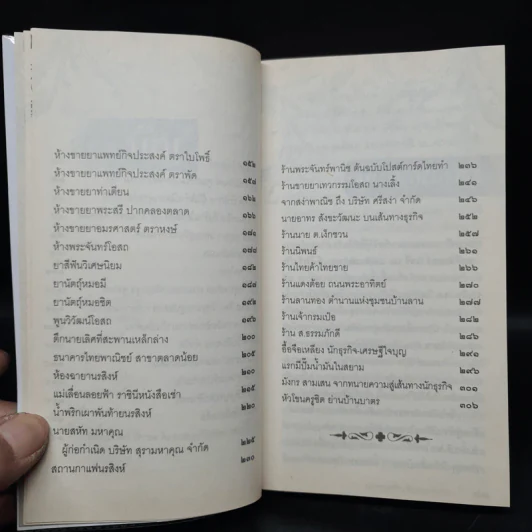 ห้างขายยาแพทย์กิจประสงค์ ตราใบโพธิ์ ๑๕๒
ห้างขายยาแพทย์กิจประสงค์ ตราพัด ๑๕๘
ห้างขายยาท่าเตียน ๑๖๒
ห้างขายยาพระสรี ปากคลองตลาด ๑๖๖
ห้างขายยาอมรศาสตร์ ตราหงษ์ ๑๗๑
ห้างพระจันทร์โอสถ ๑๗๘
ยาสีฟันวิเศษนิยม ๑๘๒
ยานัตถุ์หมอมี ๑๘๘
ยานัตถุ์หมอชิต ๑๙๒
พูนวิวัฒน์โอสถ ๑๙๖
ตึกนายเลิศที่สะพานเหล็กล่าง ๒๐๐
ธนาคารไทยพาณิชย์ สาขาตลาดน้อย ๒๐๕
ห้องฉายานรสิงห์ ๒๑๐
แม่เลื่อนลอยฟ้า ราชินีหนังสือเช่า ๒๑๕
น้ำพริกเผาพันท้ายนรสิงห์ ๒๒๐
นายสหัท มหาคุณ
ผู้ก่อกำเนิด บริษัท สุรามหาคุณ จำกัด ๒๒๕
สถานกาแฟนรสิงห์ ๒๓๐
ร้านพระจันทร์พานิช ต้นฉบับโปสต์การ์ดไทยทำ ๒๓๖
ร้านขายยาเทวกรรมโอสถ นางเลิ้ง ๒๔๑
จากสง่าพาณิช ถึง บริษัท ศรีสง่า จำกัด ๒๔๖
นายอาทร สังขะวัฒนะ บนเส้นทางธุรกิจ ๒๕๒
ร้านนาย ต.เง็กชวน ๒๕๗
ร้านนิพนธ์ ๒๖๑
ร้านไทยค้าไทยขาย ๒๖๖
ร้านแดงต้อย ถนนพระอาทิตย์ ๒๗๐
ร้านลานทอง ตำนานแห่งชุมชนบ้านลาน ๒๗๗
ร้านเจ้ากรมเป๋อ ๒๘๒
ร้าน ส.ธรรมภักดี ๒๘๖
อื้อจือเหลียง นักธุรกิจ-เศรษฐีใจบุญ ๒๙๑
แรกมีปั๊มน้ำมันในสยาม ๒๙๖
มังกร สามเสน จากทนายความสู่เส้นทางนักธุรกิจ ๓๐๑
หัวโขนครูชิต ย่านบ้านบาตร ๓๐๖